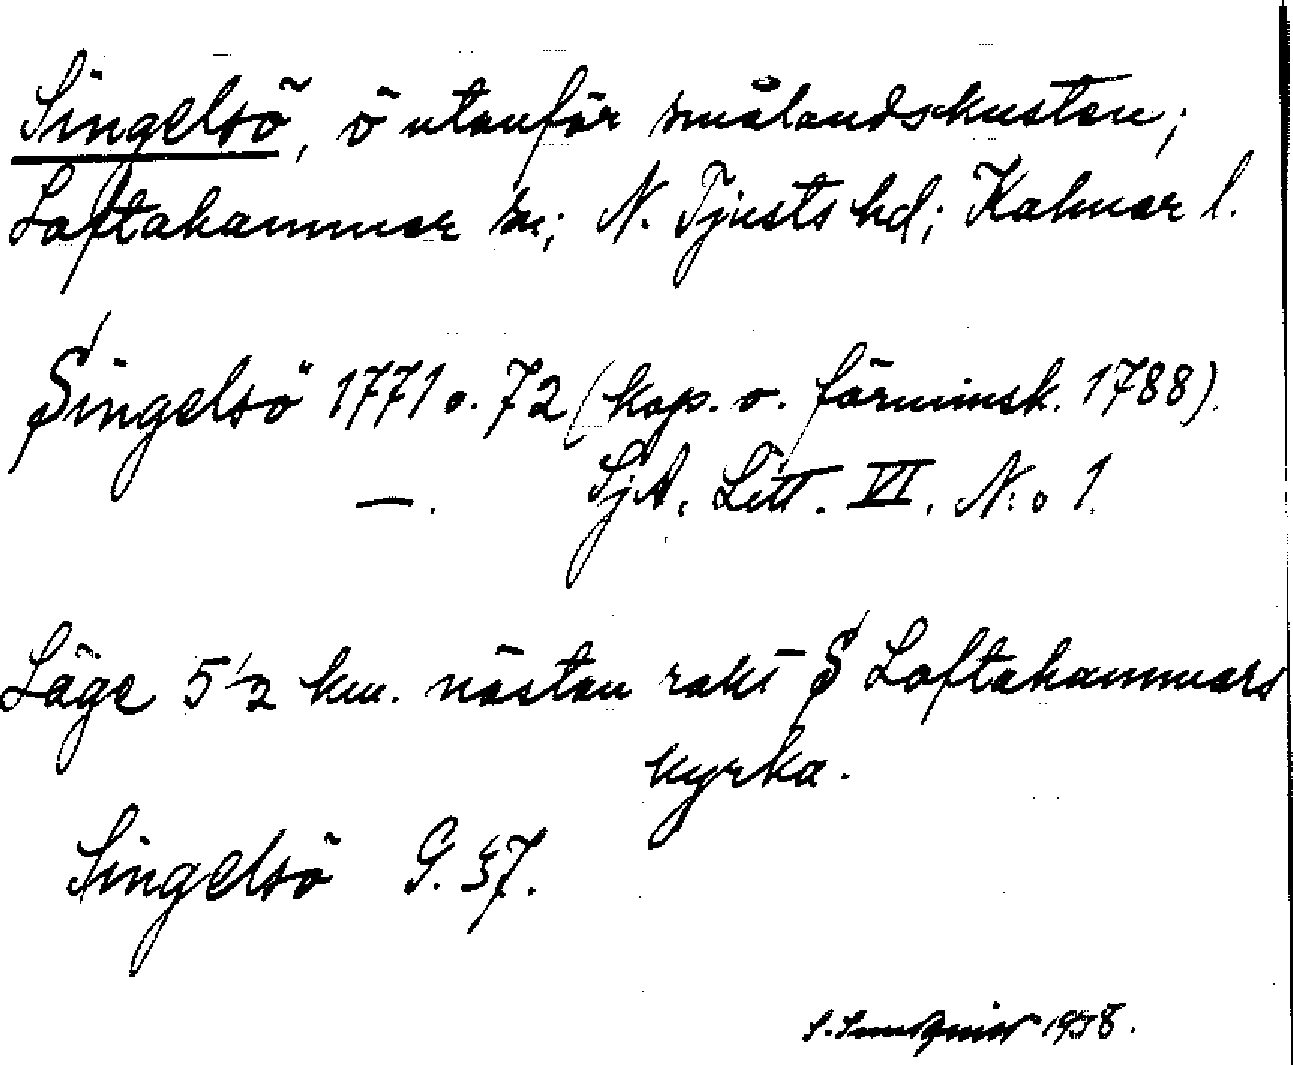 Singelsö, ö utanför smålandskusten;
Loftahammar sn; N. Tjusts hd; Kalmar l.
Singelsö 1771 o. 72 (kop. o. förminsk. 1788).
—. SjA. Litt. VI. N:o 1.
Läge 5 1/2 km. nästan rakt S Loftahammars
kyrka.
Singelsö G. 37.
S. Sundquist 1958.